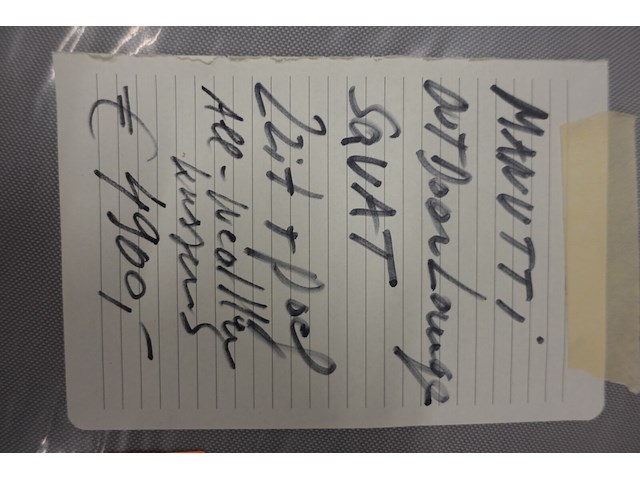 MANUTTI
OUTDOOR Lounge
SQUAT
2Zit + Poef
All-weather
kussens
€ 4900,-